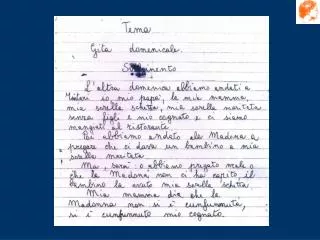 Tema
Gita domenicale.
Svolgimento
L'altra domenica abbiamo andati a
io, mio papà, la mia mamma,
mia sorella schitta, mia sorella maritata
senza figli e mio cognato e ci siamo
mangiati al ristorante.
Poi abbiamo andato ala Madona a
pregare che ci dava un bambino a mia
sorella maritata.
Ma, sarà: o abbiamo pregato male o
che la Madona non ci ha capito, il
bambino la avuto mia sorella schitta.
Mia mamma dia che la
Madonna non si è cunfumuta,
si è cunfumuto mio cognato.